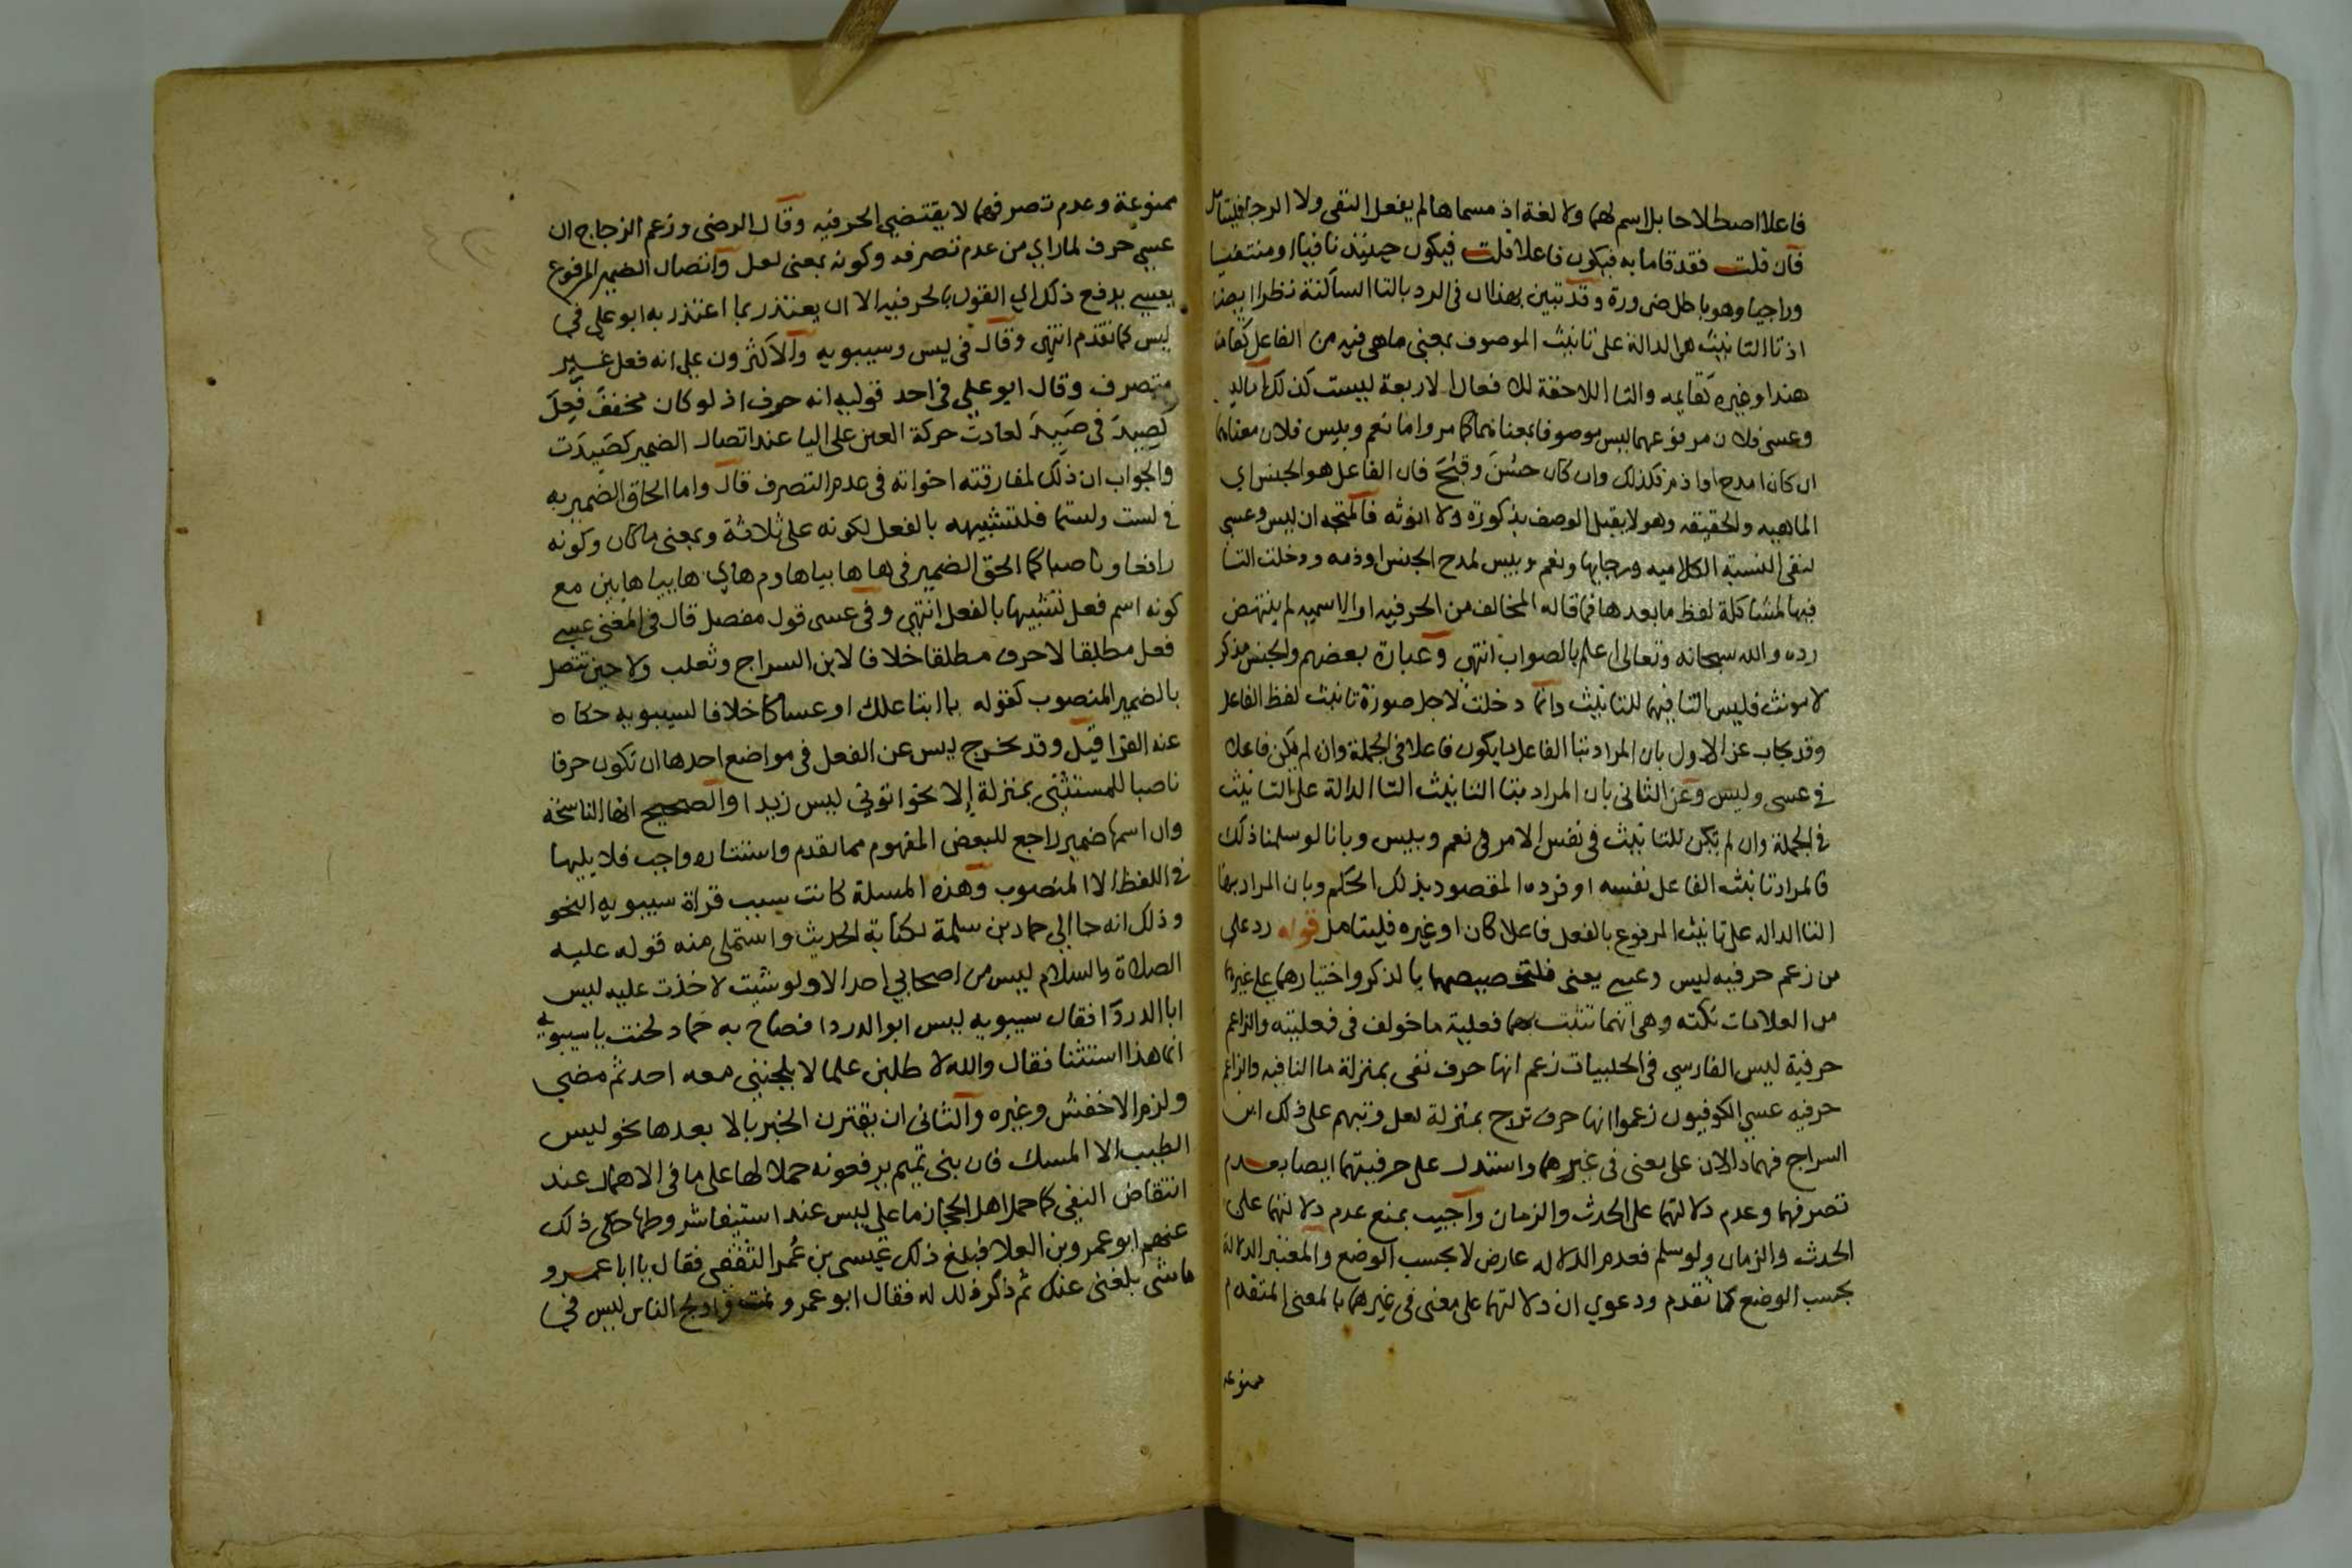 فاعلا اصطلاحا بل اسم لهما ولا لغة اذ مسماها لم يفعل النفى ولا الرجا فليتامل
فان قلت فقد قاما به فيكون فاعلا قلت فيكون حينئذ نافيا او منتفيا
وراجيا وهو باطل ضرورة وقد تبين بهذا ان فى الرد بالتا الساكنة نظرا ايضا
اذ تا التانيث هى الدالة على تانيث الموصوف بمعنى ماهى فيه من الفاعل كقامت
هند او غيره كقايمه والتا اللاحقة للافعال الاربعة ليست كذلك اما ليس
وعسى فلان مرفوعهما ليس موصوفا بمعناهما كما مر واما نعم وبيس فلان معناهما
ان كان امدح او اذم فكذلك وان كان حسن وقبح فان الفاعل هو الجنس اي
الماهيه والحقيقه وهو لا يقبل الوصف بذكورة ولا انوثه فالمتجه ان ليس وعسى
لنفى النسبة الكلاميه ورجايها ونعم وبيس لمدح الجنس او ذمه ودخلت التا
فيها لمشاكلة لفظ ما بعدها فما قاله المخالف من الحرفيه او الاسميه لم ينتهض
رده والله سبحانه وتعالى اعلم بالصواب انتهى وعبارة بعضهم والجنس مذكر
لا مونث فليس التا فيهما للتانيث وانما دخلت لاجل صورة تانيث لفظ الفاعل
وقد يجاب عن الاول بان المراد بتا الفاعل ما يكون فاعلا فى الجملة وان لم يكن فاعلا
فى عسى وليس وعن الثانى بان المراد بتا التانيث التا الدالة على التانيث
فى الجملة وان لم يكن للتانيث فى نفس الامر فى نعم وبيس وبانا لو سلمنا ذلك
فالمراد تانيث الفاعل نفسه او فرده المقصود بذلك الحكم وبان المراد بها
التا الداله على تانيث المرفوع بالفعل فاعلا كان او غيره فليتامل قوله رد على
من زعم حرفيه ليس وعسى يعنى فلتخصيصهما بالذكر واختيارهما على غيرهما
من العلامات نكته وهى انهما تثبت بهما فعلية ما خولف فى فعليته والزاعم
حرفية ليس الفارسي فى الحلبيات زعم انها حرف نفى بمنزلة ما النافيه والزاعم
حرفيه عسي الكوفيون زعموا انها حرف ترج بمنزلة لعل وتبهم على ذلك ابن
السراج فهما دالان على معنى فى غيرهما واستدل على حرفيتهما ايضا بعدم
تصرفهما وعدم دلالتهما على الحدث والزمان واجيب بمنع عدم دلالتهما على
الحدث والزمان ولو سلم فعدم الدلاله عارض لا بحسب الوضع والمعتبر الدلالة
بحسب الوضع كما تقدم ودعوي ان دلالتهما على معنى فى غيرهما بالمعنى المتقدم
ممنوعه
ممنوعة وعدم تصرفهما لا يقتضي الحرفيه وقال الرضى وزعم الزجاج ان
عسي حرف لما راي من عدم تصرفه وكونه بمعنى لعل واتصال الضمير المرفوع
بعسي يدفع ذلك اي القول بالحرفيه الا ان يعتذر بما اعتذر به ابو علي في
ليس كما تقدم انتهى وقال فى ليس وسيبويه والاكثرون على انه فعل غير
متصرف وقال ابو على فى احد قوليه انه حرف اذ لو كان مخفف فعل
كصيد فى صيد لعادت حركة العين على اليا عند اتصال الضمير كصيدت
والجواب ان ذلك لمفارقته اخواته فى عدم التصرف قال واما الحاق الضمير به
فى لست ولستما فلتشبيهه بالفعل لكونه على ثلاثة وبمعنى ما كان وكونه
رافعا وناصبا كما الحق الضمير فى ها هاييا هاوم هاي هاييا هايين مع
كونه اسم فعل تشبيها بالفعل انتهي وفى عسى قول مفصل قال فى المغنى عسي
فعل مطلقا لا حرف مطلقا خلافا لابن السراج وثعلب ولا حين تتصل
بالضمير المنصوب كقوله يا ابتا علك او عساكا خلافا لسيبويه حكاه
عنه الفرا قيل وقد يخرج ليس عن الفعل فى مواضع احدها ان تكون حرفا
ناصبا للمستثنى بمنزلة إلا نحو اتونى ليس زيدا والصحيح انها الناسخة
وان اسمها ضمير راجع للبعض المفهوم مما تقدم واستتاره واجب فلا يليها
فى اللفظ الا المنصوب وهذه المسلة كانت سبب قراة سيبويه النحو
وذلك انه جا الي حماد بن سلمة لكتابة الحديث واستملى منه قوله عليه
الصلاة والسلام ليس من اصحابي احد الا ولو شيت لاخذت عليه ليس
ابا الدردا فقال سيبويه ليس ابو الدردا فصاح به حماد لحنت يا سيبويه
انما هذا استثنا فقال والله لا طلبن علما لا يلحننى معه احد ثم مضى
ولزم الاخفش وغيره والثانى ان يقترن الخبر بالا بعدها نحو ليس
الطيب الا المسك فان بنى تميم يرفعونه حملا لها على ما فى الاهمال عند
انتقاض النفي كما حمل اهل الحجاز ما على ليس عند استيفا شروطها حكى ذلك
عنهم ابو عمرو بن العلا فبلغ ذلك عيسى بن عمر الثقفى فقال يا ابا عمرو
ما شى بلغنى عنك ثم ذكر ذلك له فقال ابو عمرو نمت وادلج الناس ليس في